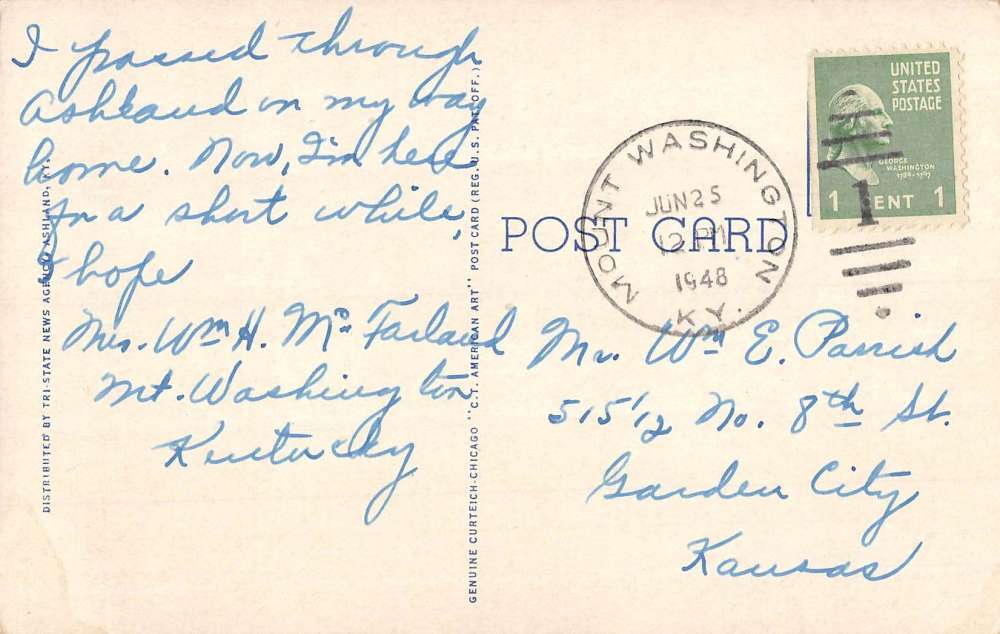 I passed through
Ashland on my way
home. Now, I'm here
for a short while,
I hope
Mrs. Wm H. McFarland
Mt. Washington
Kentucky
DISTRIBUTED BY TRI-STATE NEWS AGENCY, ASHLAND, KY.
GENUINE CURTEICH-CHICAGO "C.T. AMERICAN ART" POST CARD (REG. U.S. PAT. OFF.)
POST CARD
MOUNT WASHINGTON
JUN 25
12 PM
1948
KY.
UNITED
STATES
POSTAGE
GEORGE
WASHINGTON
1789-1797
1 CENT 1
1
Mr. Wm E. Parrish
515 1/2 No. 8th St.
Garden City
Kansas